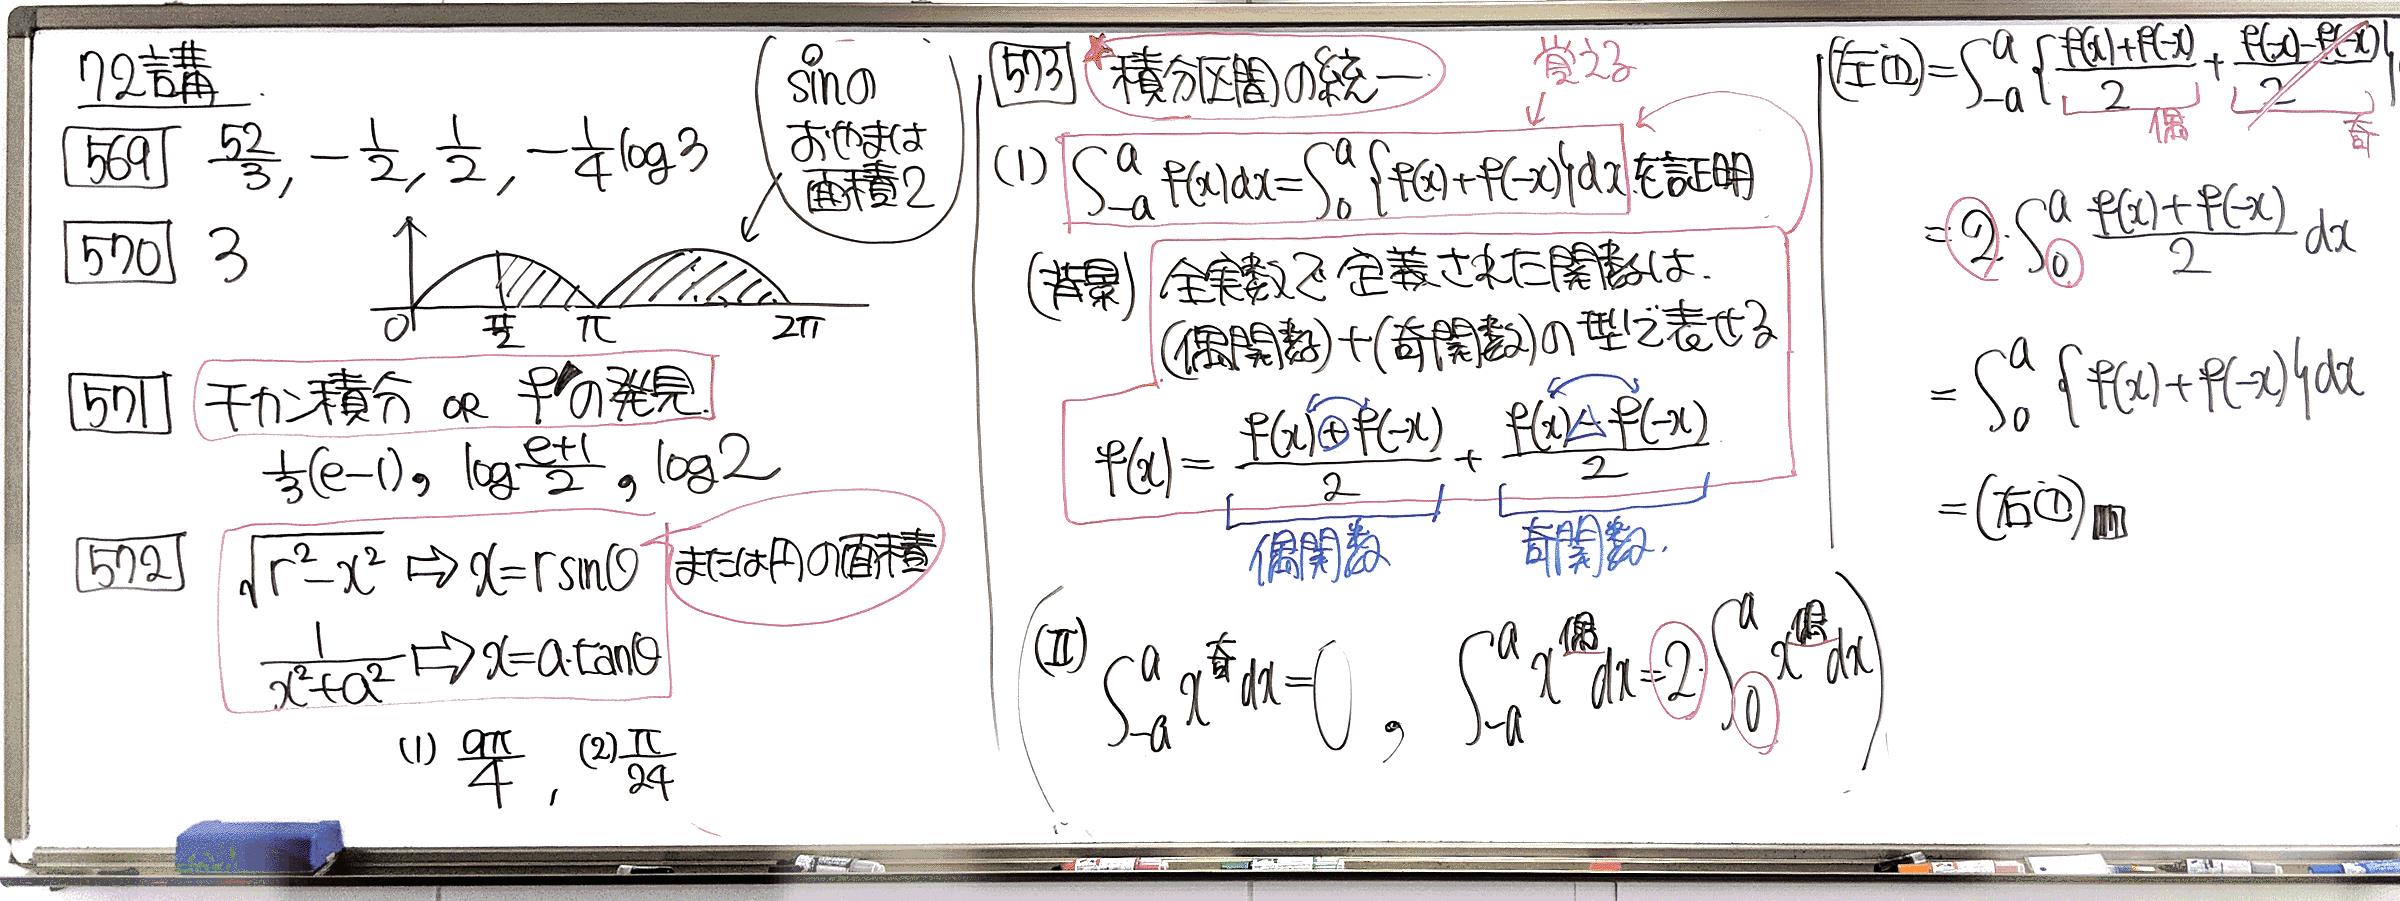 72講
569 52/3, -1/2, 1/2, -1/4 log3
570 3
sinの
おやまは
面積2
0 π/2 π 2π
571 チカン積分 OR f'の発見
1/3(e-1), log (e+1)/2, log2
572 √(r²-x²) ⇨ x=rsinθ
または円の面積
1/(x²+a²) ⇨ x=a·tanθ
(1) 9π/4, (2) π/24
573 ★積分区間の統一
覚える
(1) ∫_{-a}^{a} f(x)dx=∫_{0}^{a}{f(x)+f(-x)}dx を証明
(背景) 全実数で定義された関数は、
(偶関数)+(奇関数)の型で表せる
f(x) = (f(x)+f(-x))/2 + (f(x)-f(-x))/2
偶関数 奇関数.
(II) ∫_{-a}^{a} x^奇 dx=0, ∫_{-a}^{a} x^偶 dx=2·∫_{0}^{a} x^偶 dx
(左辺)=∫_{-a}^{a}{(f(x)+f(-x))/2 + (f(x)-f(-x))/2}
偶 奇
=2·∫_{0}^{a} (f(x)+f(-x))/2 dx
=∫_{0}^{a}{f(x)+f(-x)}dx
=(右辺)